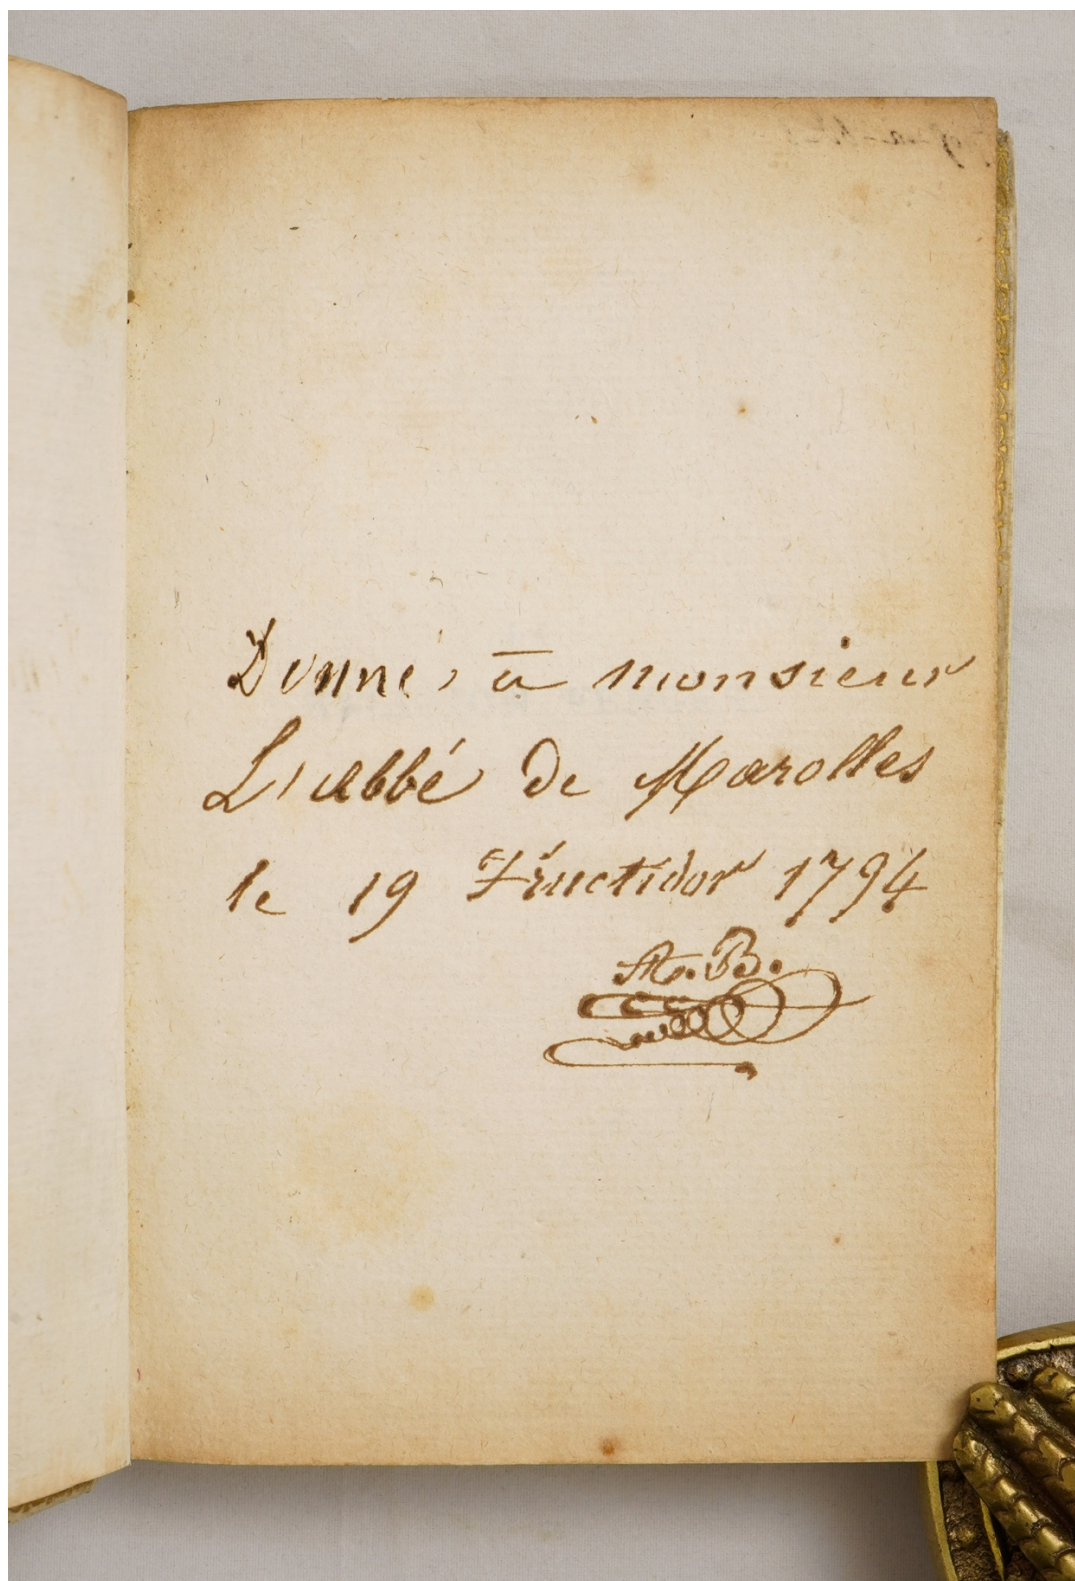 Donné, à monsieur
L'abbé de Marolles
le 19 Fructidor 1794
A. B.